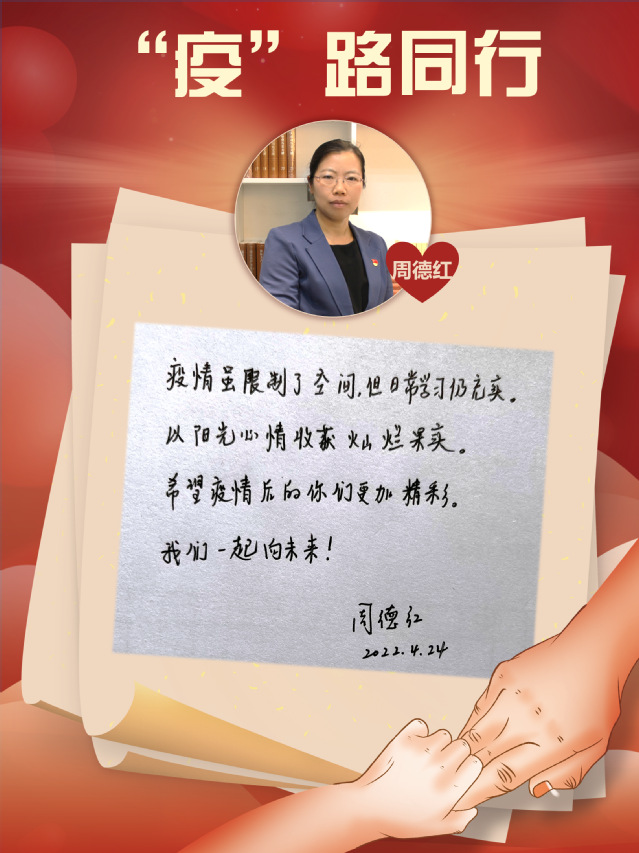 “疫”路同行
周德红
疫情虽限制了空间,但日常学习仍充实。
以阳光心情收获灿烂果实。
希望疫情后的你们更加精彩。
我们一起向未来!
周德红
2022.4.24